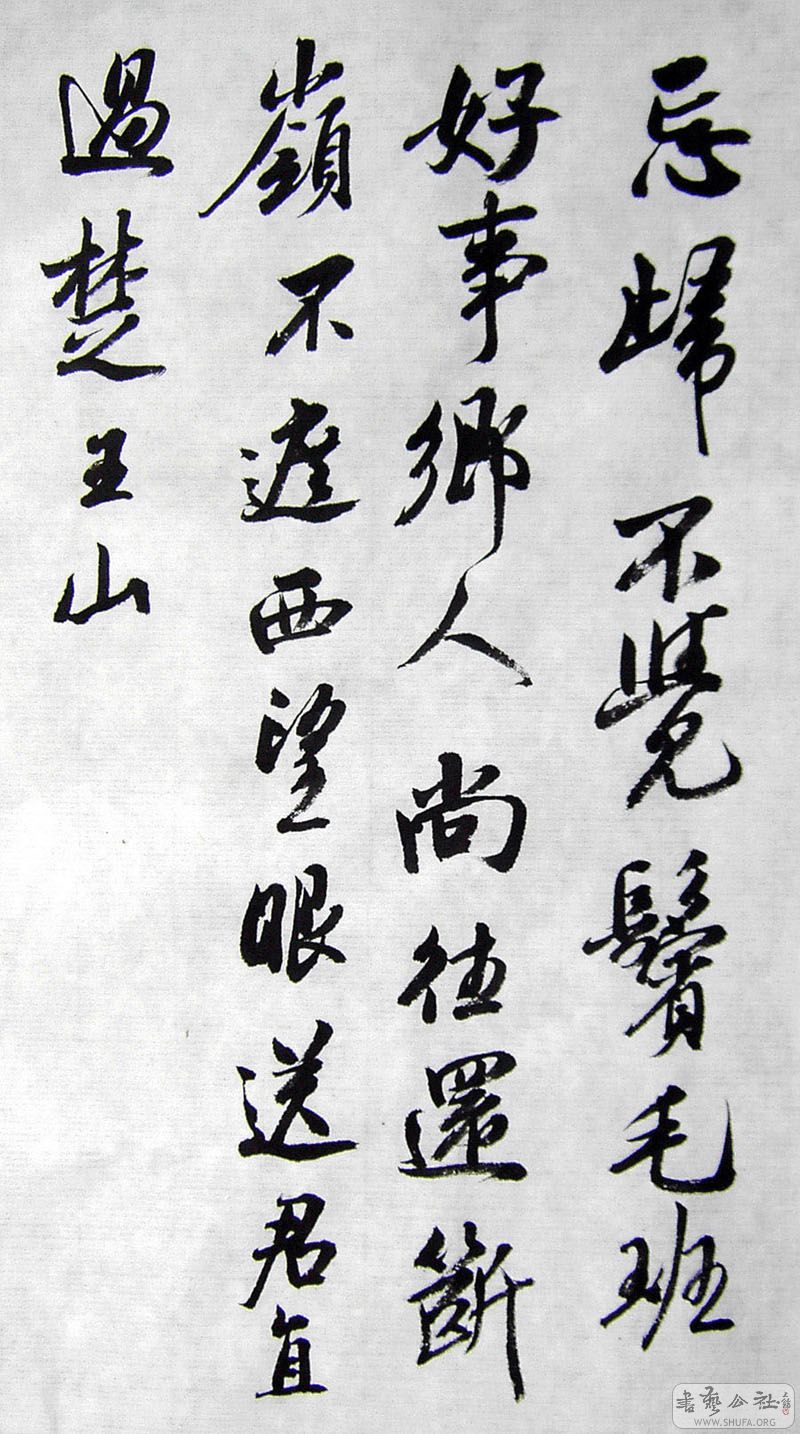 忘歸不覺鬢毛班
好事鄉人尚往還斷
嶺不遮西望眼送君直
過楚王山
書藝公社
WWW.SHUFA.ORG